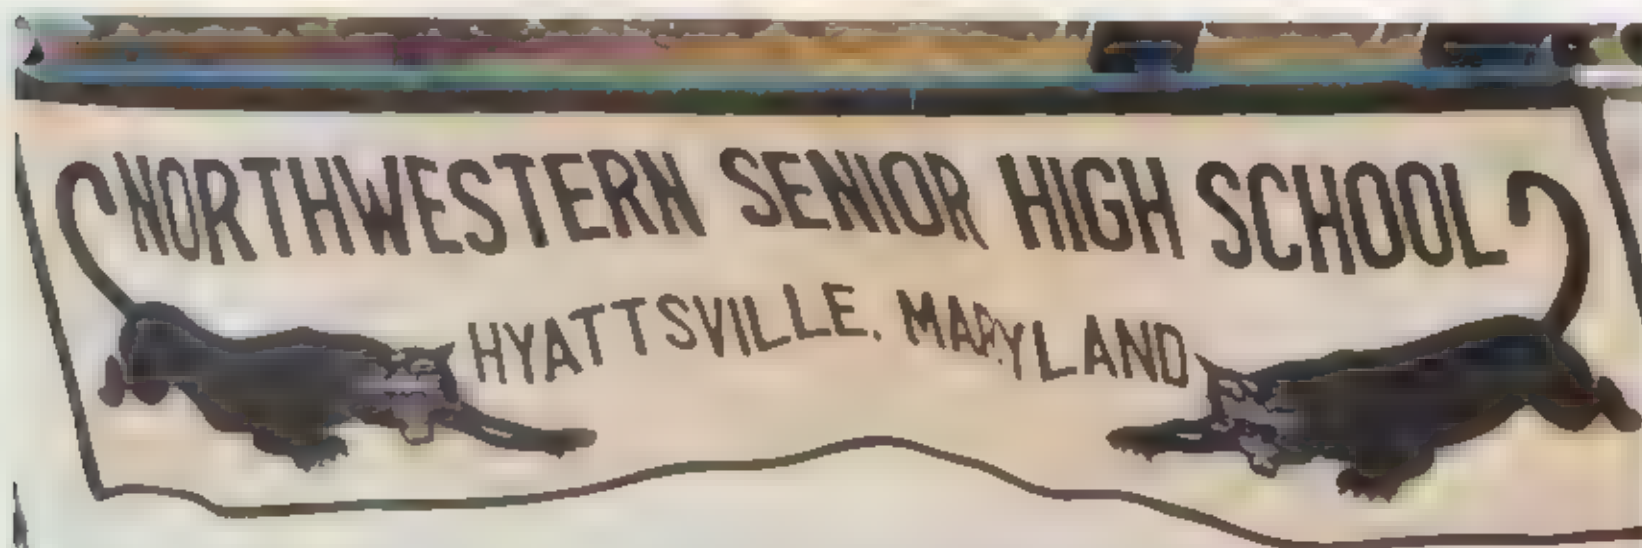 NORTHWESTERN SENIOR HIGH SCHOOL
HYATTSVILLE, MARYLAND